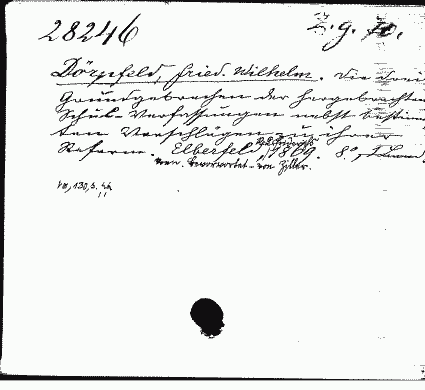 28246 Z.g. 70.
Dörpfeld, Fried. Wilhelm. Die drei
Grundgebrechen der hergebrachten
Schul-Verfassungen nebst bestim
ten Vorschlägen zu ihrer
Reform. Elberfeld, 1869. 8°,
von Bevorwortet von Ziller.
VIII, 130, S.